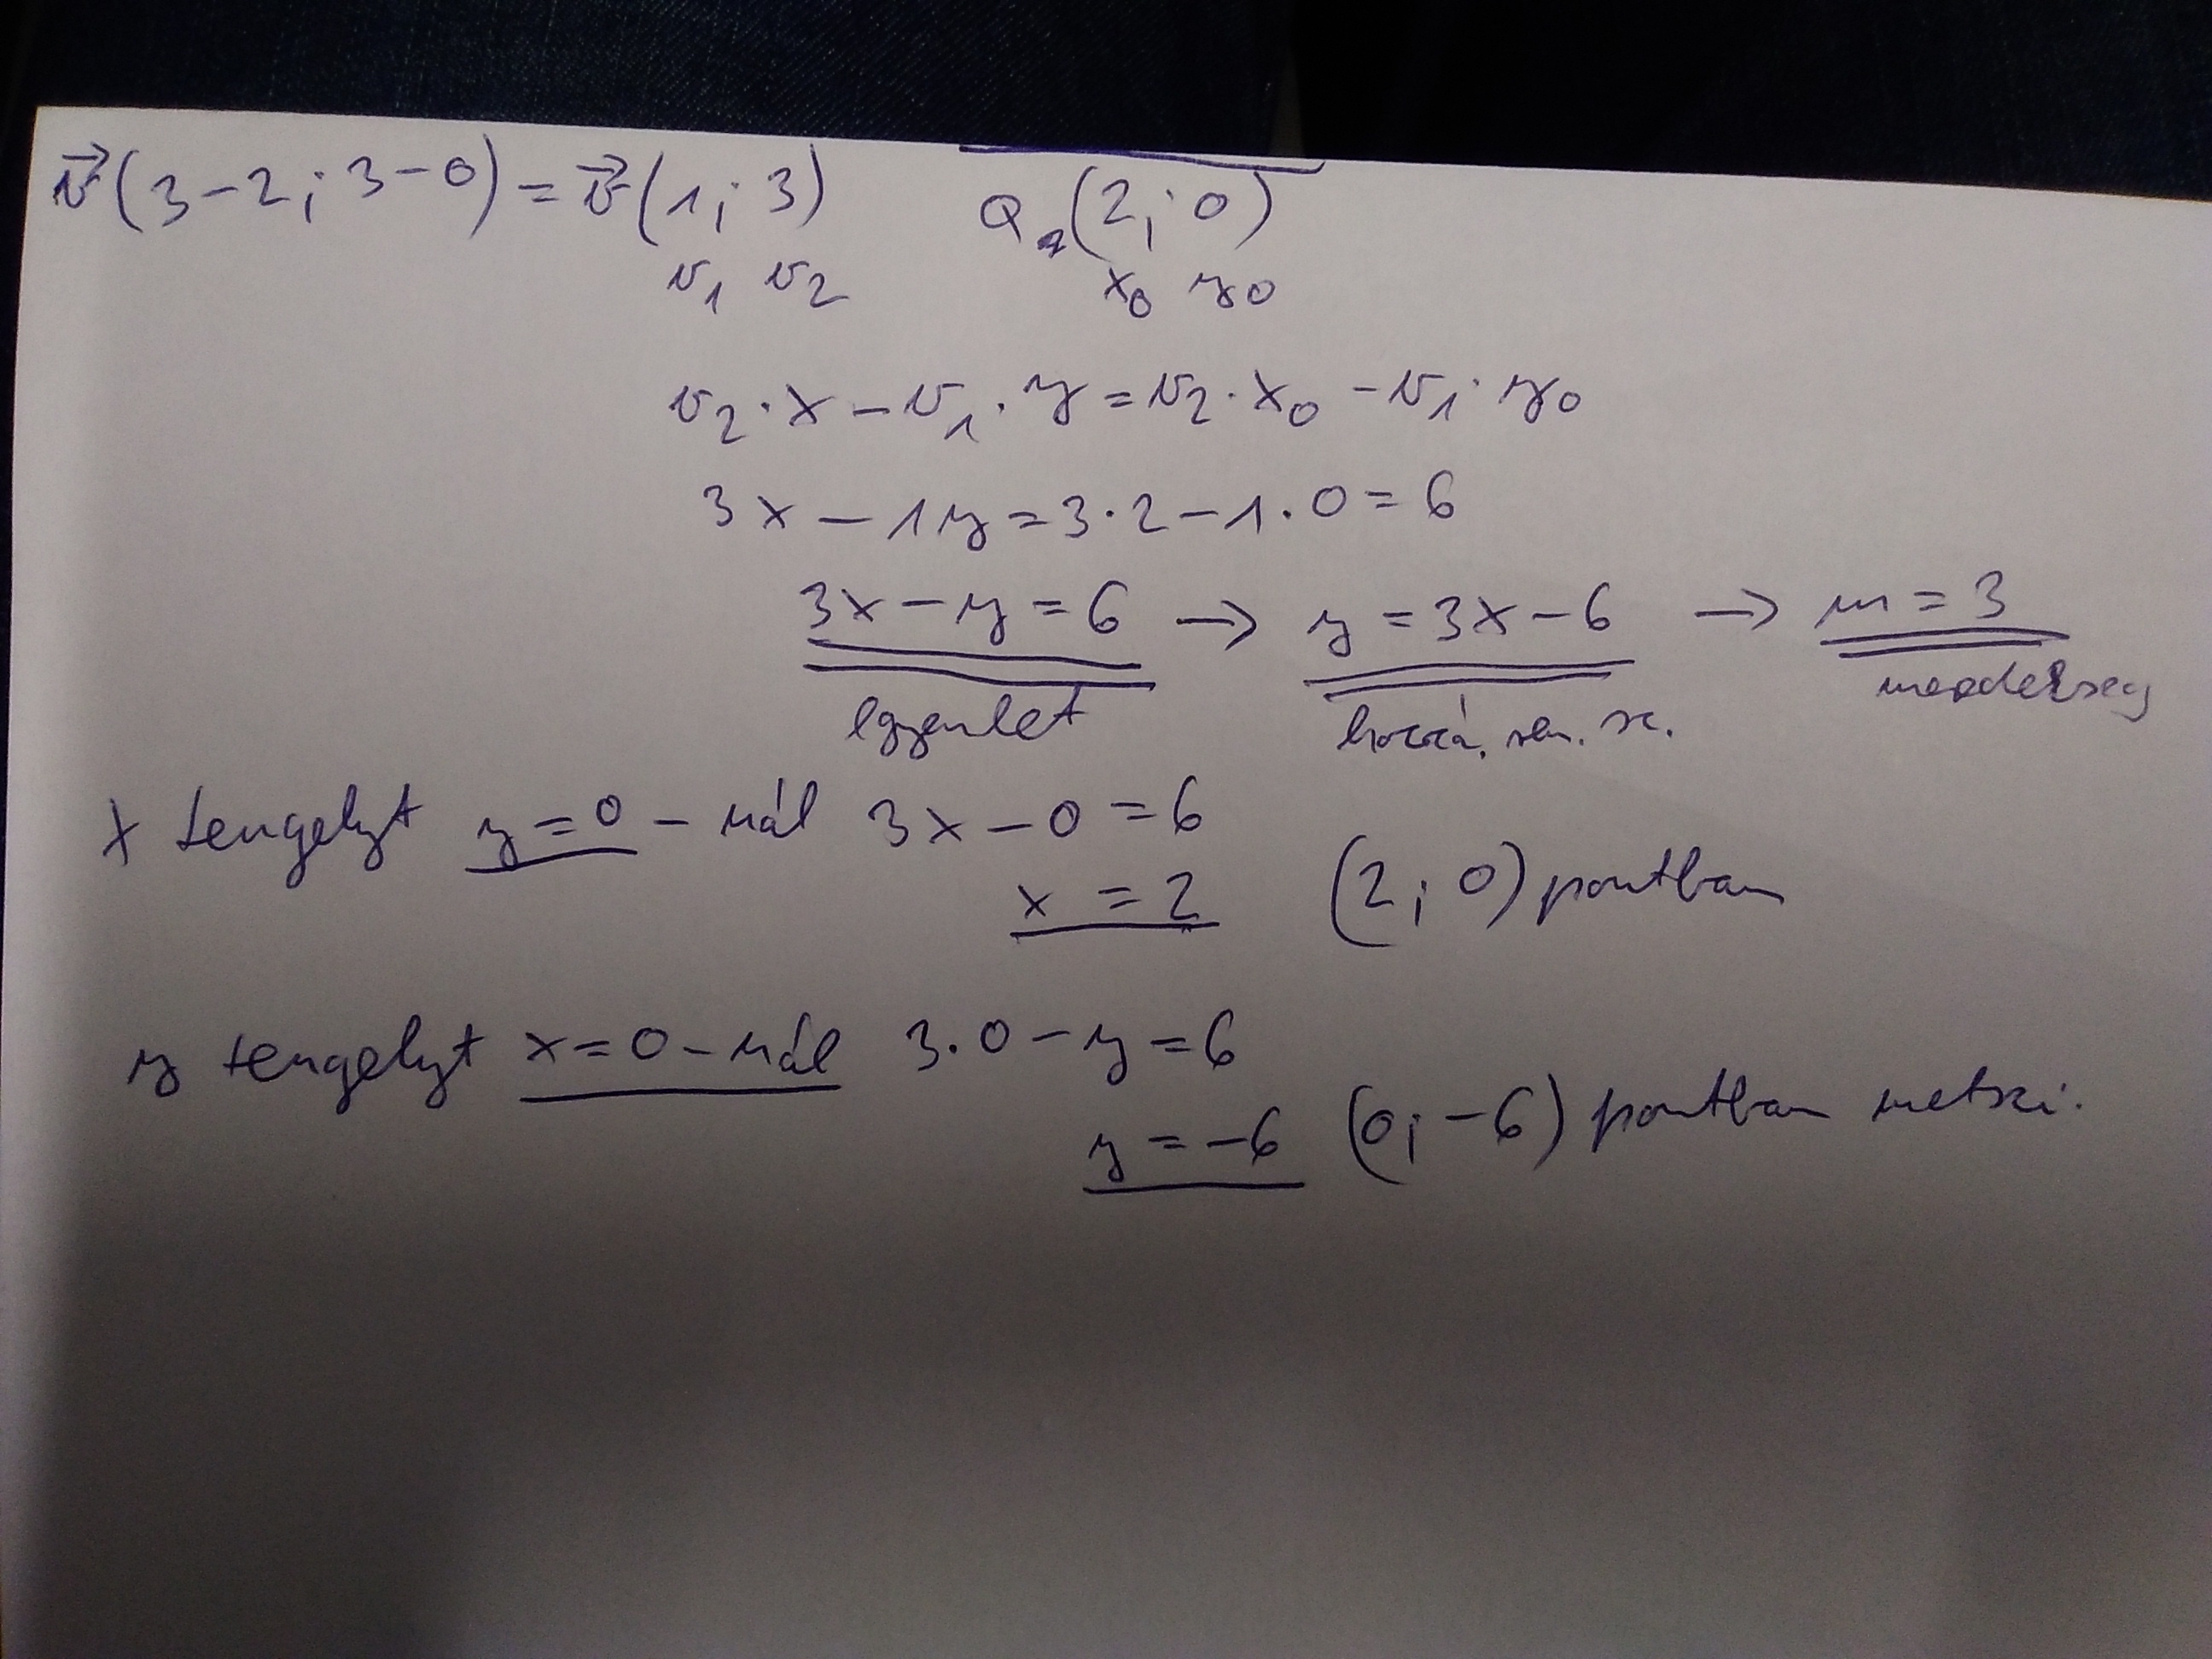 v⃗(3-2; 3-0) = v⃗(1; 3) Q(2; 0)
v₁ v₂ x₀ y₀
v₂·x - v₁·y = v₂·x₀ - v₁·y₀
3x - 1y = 3·2 - 1·0 = 6
3x - y = 6 → y = 3x - 6 → m = 3
Egyenlet hozzá. ren. sz. meredekség
x tengelyt y = 0 - nál 3x - 0 = 6
x = 2 (2; 0) pontban
y tengelyt x = 0 - nál 3·0 - y = 6
y = -6 (0; -6) pontban metszi.